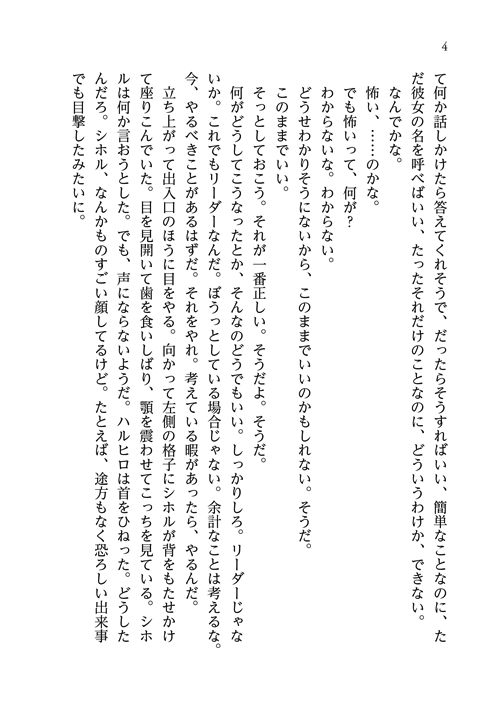 4
て何か話しかけたら答えてくれそうで、だったらそうすればいい、簡単なことなのに、た
だ彼女の名を呼べばいい、たったそれだけのことなのに、どういうわけか、できない。
なんでかな。
怖い、……のかな。
でも怖いって、何が？
わからないな。わからない。
どうせわかりそうにないから、このままでいいのかもしれない。そうだ。
このままでいい。
そっとしておこう。それが一番正しい。そうだよ。そうだ。
何がどうしてこうなったとか、そんなのどうでもいい。しっかりしろ。リーダーじゃな
いか。これでもリーダーなんだ。ぼうっとしている場合じゃない。余計なことは考えるな。
今、やるべきことがあるはずだ。それをやれ。考えている暇があったら、やるんだ。
立ち上がって出入口のほうに目をやる。向かって左側の格子にシホルが背をもたせかけ
て座りこんでいた。目を見開いて歯を食いしばり、顎を震わせてこっちを見ている。シホ
ルは何か言おうとした。でも、声にならないようだ。ハルヒロは首をひねった。どうした
んだろ。シホル、なんかものすごい顔してるけど。たとえば、途方もなく恐ろしい出来事
でも目撃したみたいに。